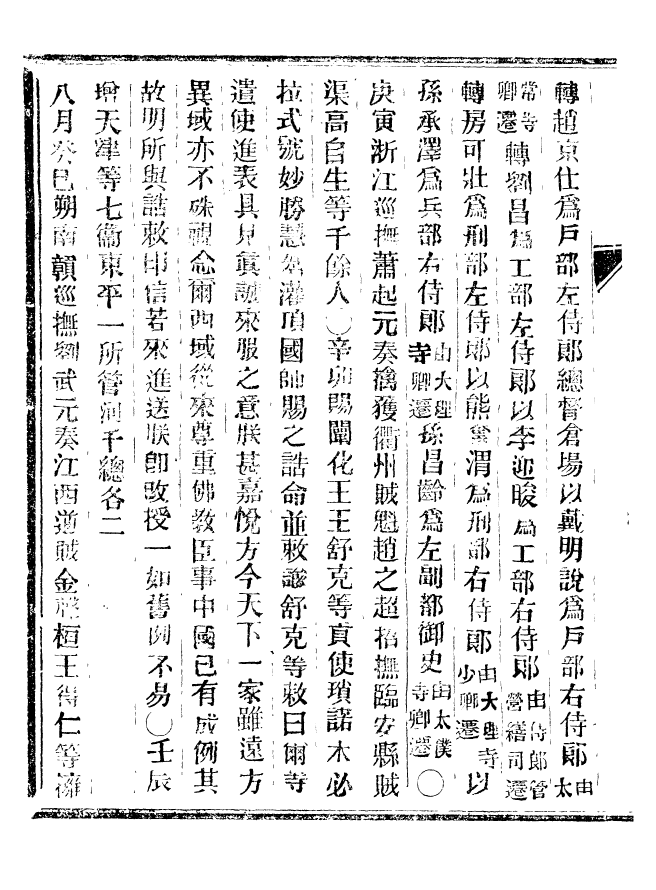 轉趙京仕爲戶部左侍郎總督倉場以戴明說爲戶部右侍郎由太
常寺卿遷轉劉昌爲工部左侍郎以李迎晙爲工部右侍郎由侍郎管營繕司遷
轉房可壯爲刑部左侍郎以熊奮渭爲刑部右侍郎由大理寺少卿遷以
孫承澤爲兵部右侍郎由大理寺卿遷孫昌齡爲左副都御史由太僕寺卿遷〇
庚寅浙江巡撫蕭起元奏擒獲衢州賊魁趙之超招撫臨安縣賊
渠高自生等千餘人〇辛卯賜闡化王王舒克等貢使瑣諾木必
拉式號妙勝慧智灌頂國師賜之誥命並敕諭舒克等敕曰爾等
遣使進表具見眞誠來服之意朕甚嘉悅方今天下一家雖遠方
異域亦不殊視念爾西域從來尊重佛教臣事中國已有成例其
故明所與誥敕印信若來進送朕卽改授一如舊例不易〇壬辰
增天津等七衞東平一所管河千總各二
八月癸巳朔南贛巡撫劉武元奏江西遊賊金聲桓王得仁等擁